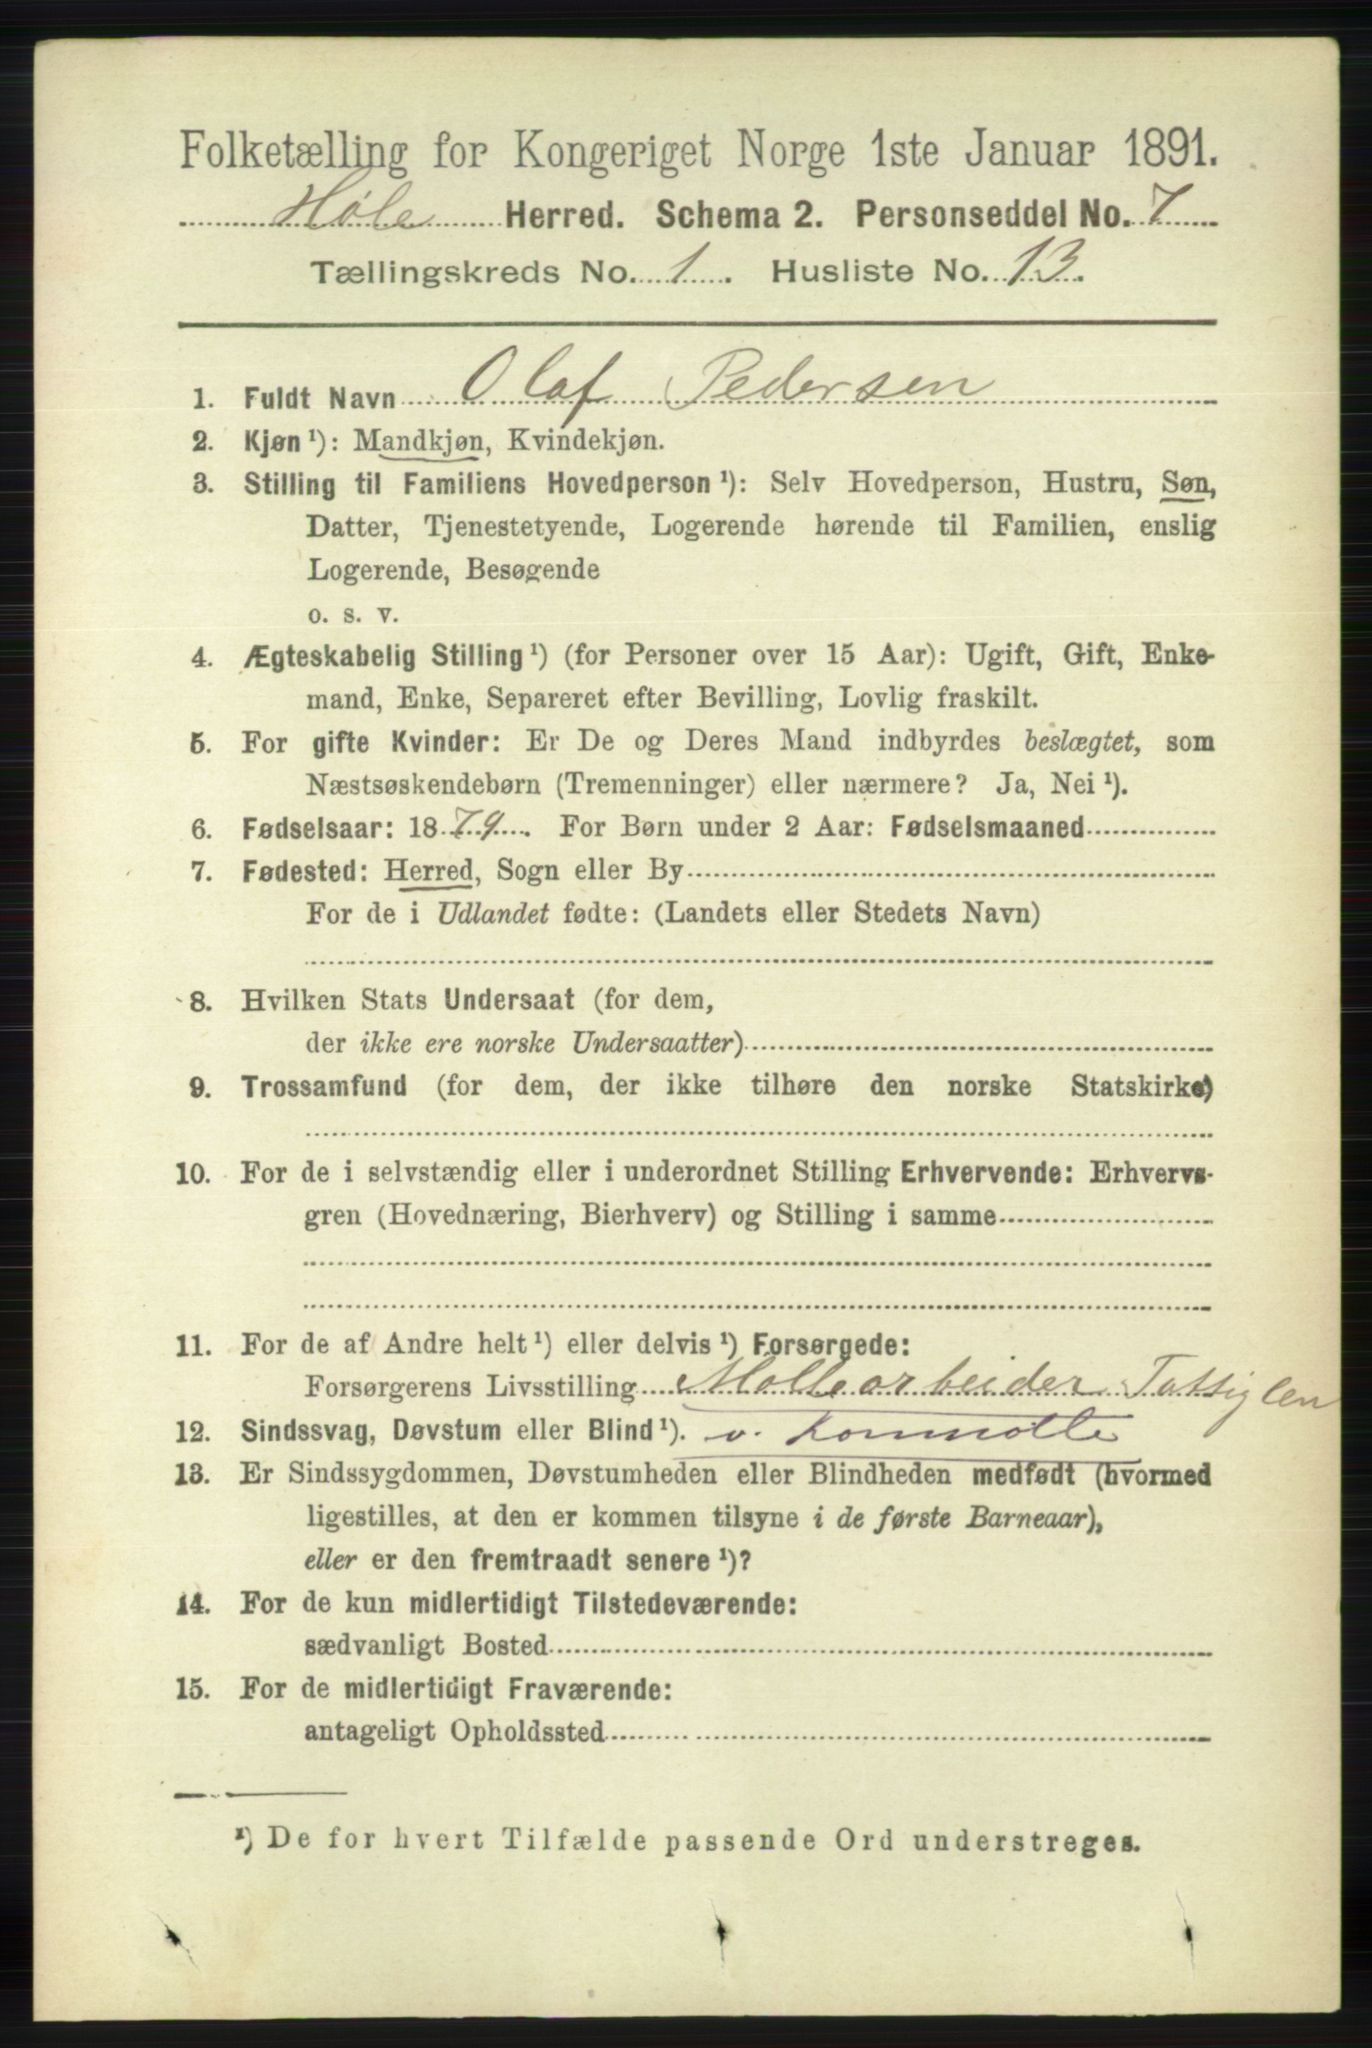 Folketælling for Kongeriget Norge 1ste Januar 1891.
Høle Herred. Schema 2. Personseddel No. 7
Tællingskreds No. 1. Husliste No. 13.
1. Fuldt Navn Olaf Pedersen
2. Kjøn ¹): Mandkjøn, Kvindekjøn.
3. Stilling til Familiens Hovedperson ¹): Selv Hovedperson, Hustru, Søn,
Datter, Tjenestetyende, Logerende hørende til Familien, enslig
Logerende, Besøgende
o. s. v.
4. Ægteskabelig Stilling ¹) (for Personer over 15 Aar): Ugift, Gift, Enke-
mand, Enke, Separeret efter Bevilling, Lovlig fraskilt.
5. For gifte Kvinder: Er De og Deres Mand indbyrdes beslægtet, som
Næstsøskendebørn (Tremenninger) eller nærmere? Ja, Nei ¹).
6. Fødselsaar: 1879. For Børn under 2 Aar: Fødselsmaaned
7. Fødested: Herred, Sogn eller By
For de i Udlandet fødte: (Landets eller Stedets Navn)
8. Hvilken Stats Undersaat (for dem,
der ikke ere norske Undersaatter)
9. Trossamfund (for dem, der ikke tilhøre den norske Statskirke)
10. For de i selvstændig eller i underordnet Stilling Erhvervende: Erhvervs-
gren (Hovednæring, Bierhverv) og Stilling i samme
11. For de af Andre helt ¹) eller delvis ¹) Forsørgede:
Forsørgerens Livsstilling Møllearbeider
12. Sindssvag, Døvstum eller Blind ¹). v. Kornmølle
13. Er Sindssygdommen, Døvstumheden eller Blindheden medfødt (hvormed
ligestilles, at den er kommen tilsyne i de første Barneaar),
eller er den fremtraadt senere ¹)?
14. For de kun midlertidigt Tilstedeværende:
sædvanligt Bosted
15. For de midlertidigt Fraværende:
antageligt Opholdssted
¹) De for hvert Tilfælde passende Ord understreges.